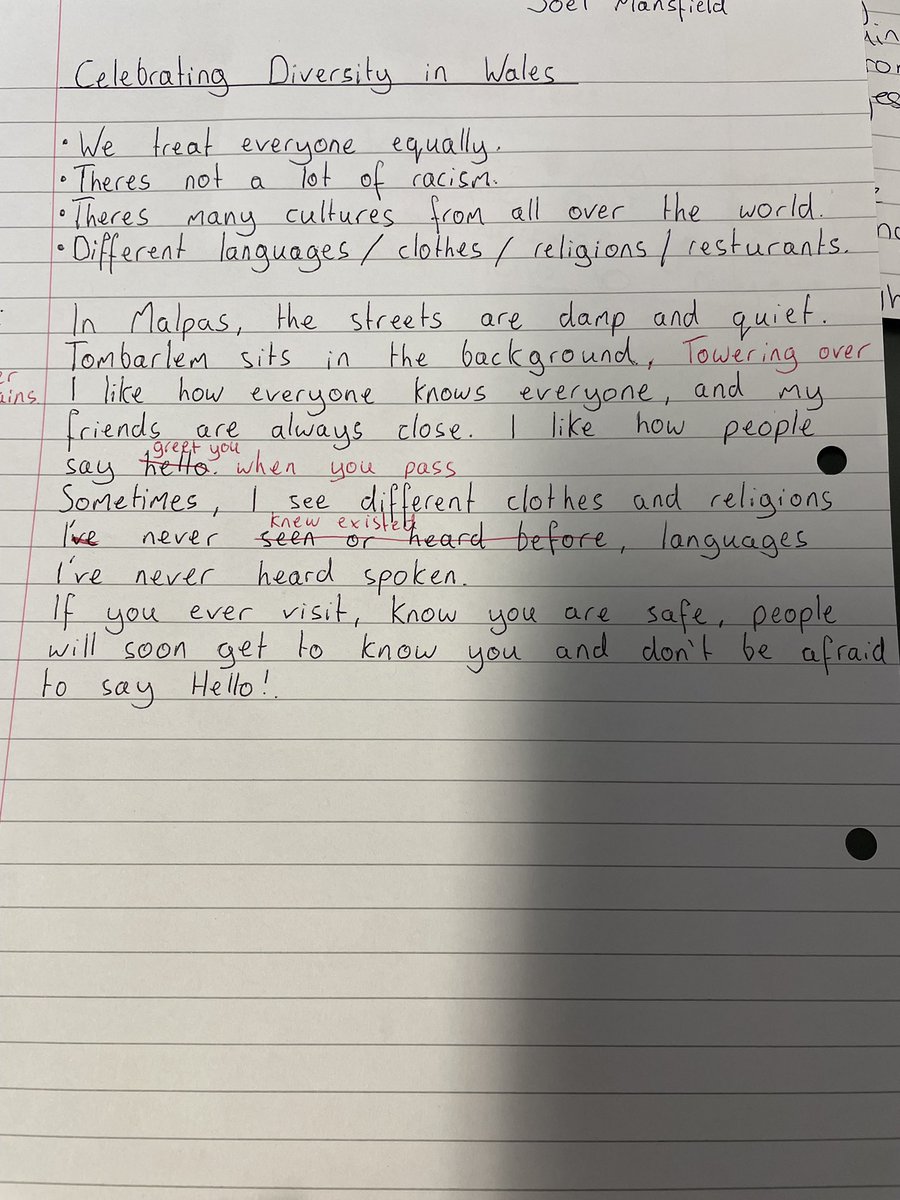 Joel Mansfield
Celebrating Diversity in Wales
• We treat everyone equally.
• Theres not a lot of racism.
• Theres many cultures from all over the world.
• Different languages / clothes / religions / resturants.
In Malpas, the streets are damp and quiet.
Tombarlem sits in the background, Towering over
I like how everyone knows everyone, and my
friends are always close. I like how people
greet you
say hello. when you pass
Sometimes, I see different clothes and religions
knew existed
I've never seen or heard before, languages
I've never heard spoken.
If you ever visit, know you are safe, people
will soon get to know you and don't be afraid
to say Hello!.